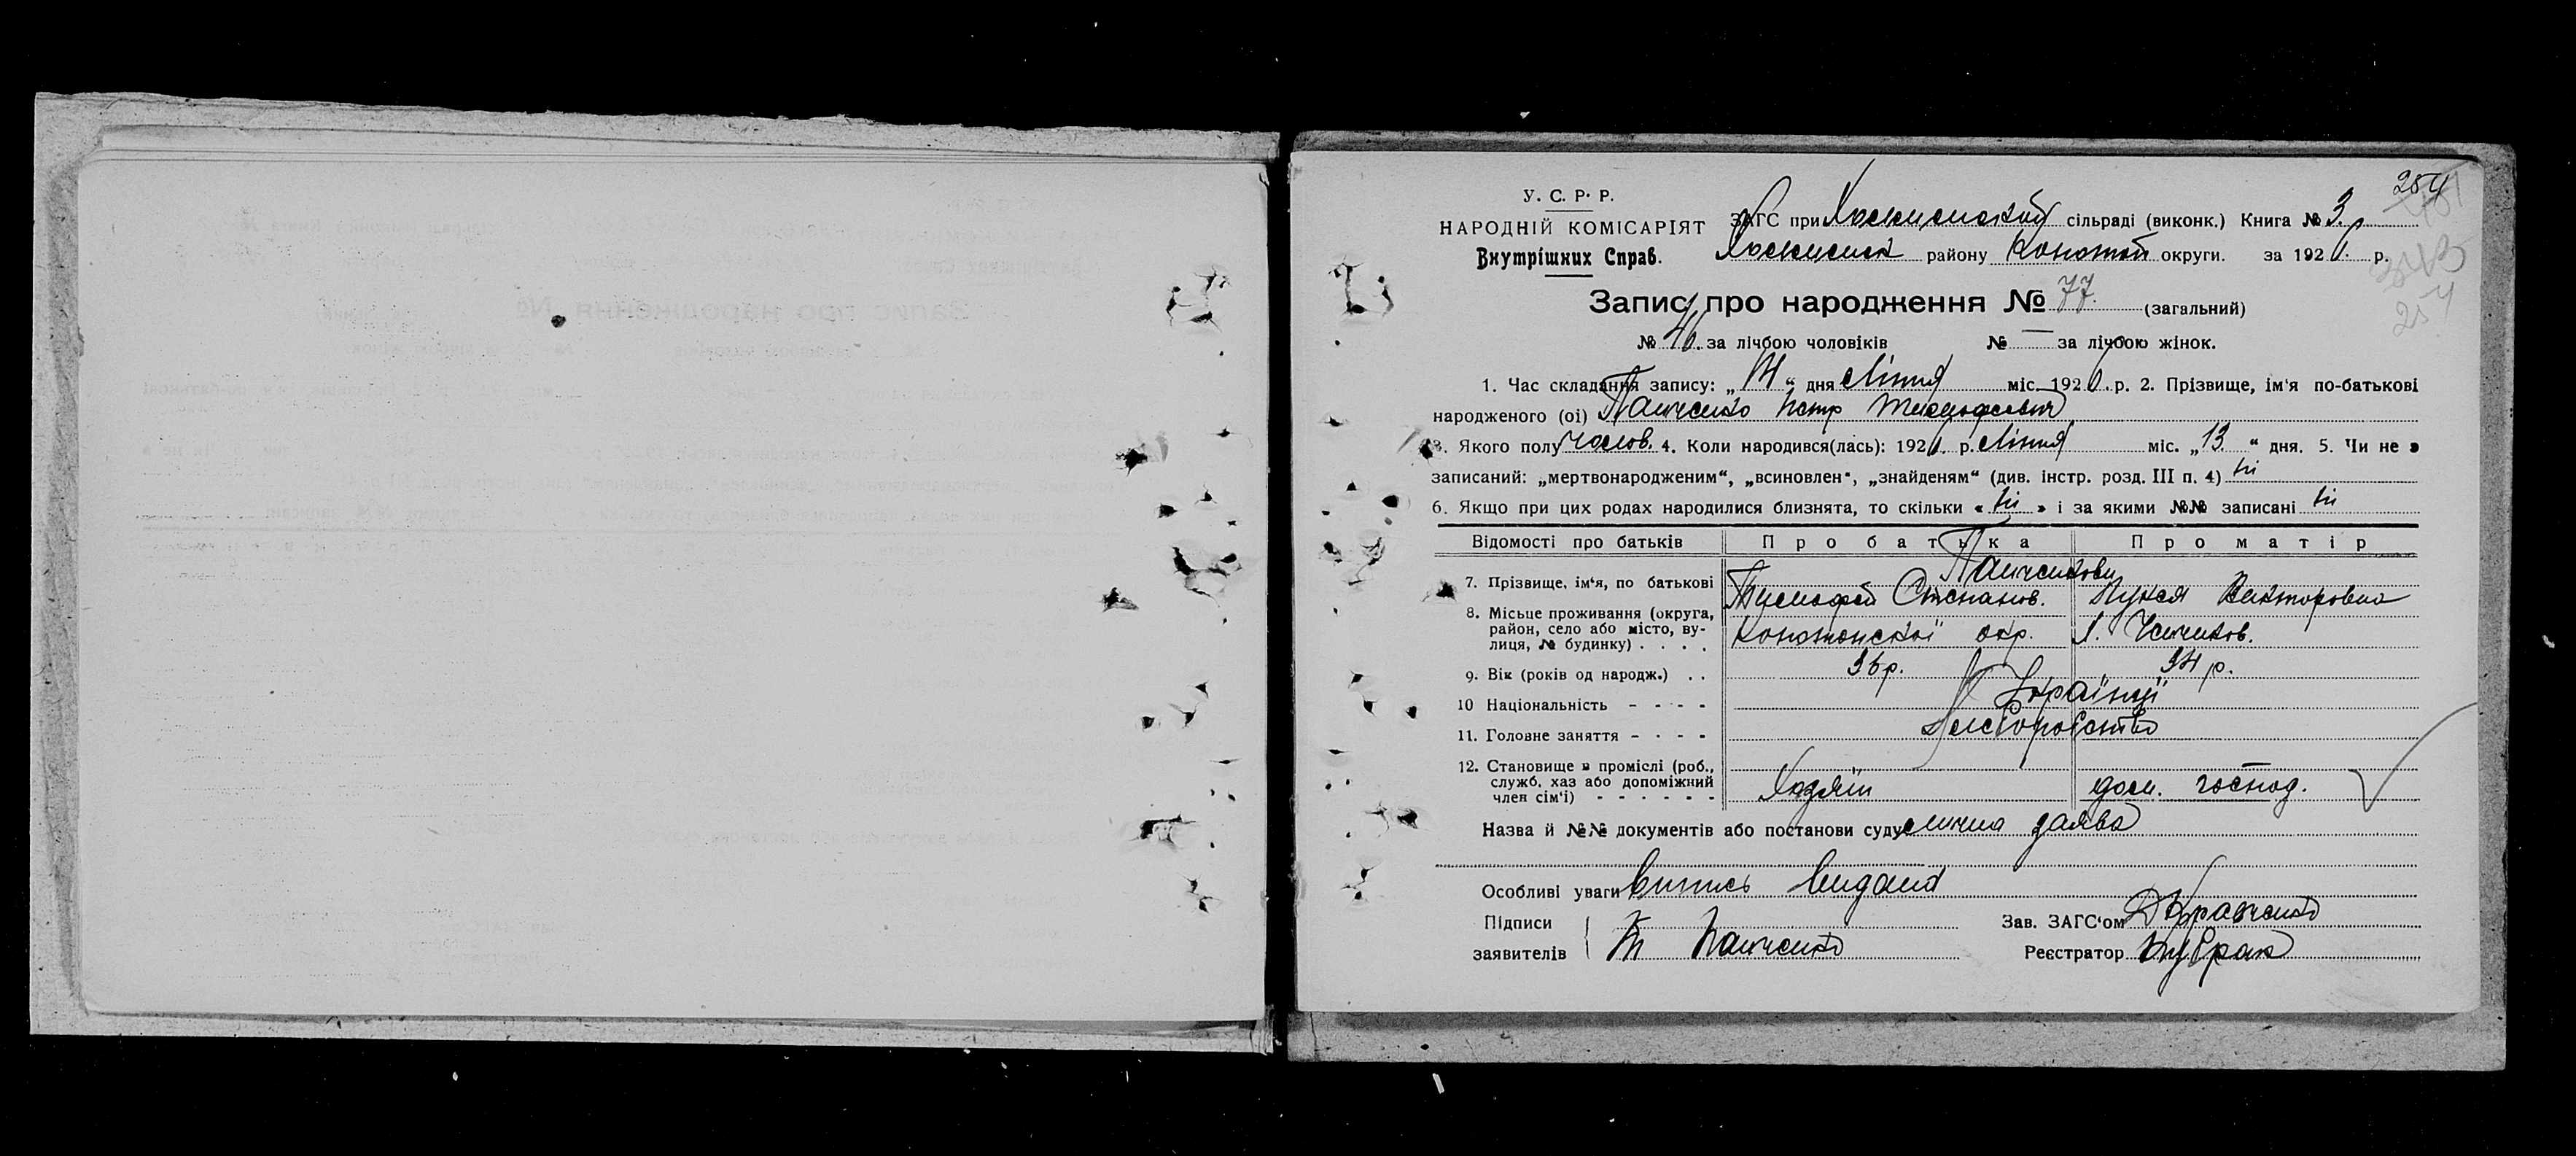 254
У. С. Р. Р.
НАРОДНІЙ КОМІСАРІЯТ
Внутрішних Справ.
ЗАГС при сільраді (виконк.) Книга № 3.
району Конотоп округи. за 1926 р.
343
254
Запис про народження № 77. (загальний)
№ 46. за лічбою чоловіків № — за лічбою жінок.
1. Час складання запису: „ “ дня Липня міс. 1926. р. 2. Прізвище, ім‘я по-батькові
народженого (ої) Панченко Петр Тимофеевич
3. Якого полу чолов. 4. Коли народився(лась): 1926. р. Липня міс. „13.“ дня. 5. Чи не є
записаний: „мертвонародженим“, „всиновлен“, „знайденям“ (див. інстр. розд. III п. 4) ні
6. Якщо при цих родах народилися близнята, то скільки « ні » і за якими №№ записані ні
Відомості про батьків Про батька Про матір
7. Прізвище, ім‘я, по батькові
Панченкови
Тимофей Степанов. Викторовна
8. Місьце проживання (округа,
район, село або місто, ву-
лиця, № будинку) . . . .
Конотопскої окр.
9. Вік (років од народж.) . . 36 р. 34 р.
10 Національність - - - - Українці
11. Головне заняття - - - -
12. Становище в проміслі (роб.,
служб. хаз або допоміжний
член сім‘ї) - - - - - -
Хазяїн дом. господ.
Назва й №№ документів або постанови суду лична заява
Особливі уваги випись видана
Підписи
заявителів Т Панченко
Зав. ЗАГС‘ом Кравченко
Реєстратор